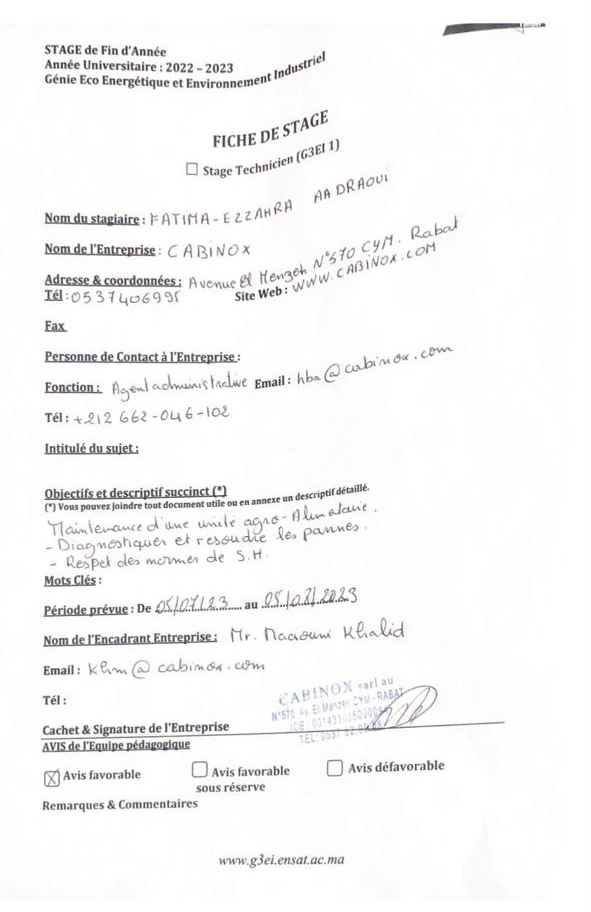 STAGE de Fin d'Année
Année Universitaire : 2022 – 2023
Génie Eco Energétique et Environnement Industriel
FICHE DE STAGE
☐ Stage Technicien (G3EI 1)
Nom du stagiaire : FATIMA-EZZAHRA AADRAOUI
Nom de l'Entreprise : CABINOX
Adresse & coordonnées : Avenue El Menzeh N°570 CYM. Rabat
Tél : 0537406995 Site Web : WWW.CABINOX.COM
Fax
Personne de Contact à l'Entreprise :
Fonction : Agent administrative Email : hba@cabinox.com
Tél : +212 662-046-102
Intitulé du sujet :
Objectifs et descriptif succinct (*)
(*) Vous pouvez joindre tout document utile ou en annexe un descriptif détaillé.
Maintenance d'une unité agro-Alimentaire.
- Diagnostiquer et resoudre les pannes.
- Respet des normes de S.H.
Mots Clés :
Période prévue : De 05/07/23 au 05/08/2023
Nom de l'Encadrant Entreprise : Mr. Naciouni Khalid
Email : khm@cabinox.com
Tél :
CABINOX sarl au
N°570 Av. El Menzeh CYM - RABAT
ICE :
TEL: 0537
Cachet & Signature de l'Entreprise
AVIS de l'Equipe pédagogique
☒ Avis favorable ☐ Avis favorable sous réserve ☐ Avis défavorable
Remarques & Commentaires
www.g3ei.ensat.ac.ma